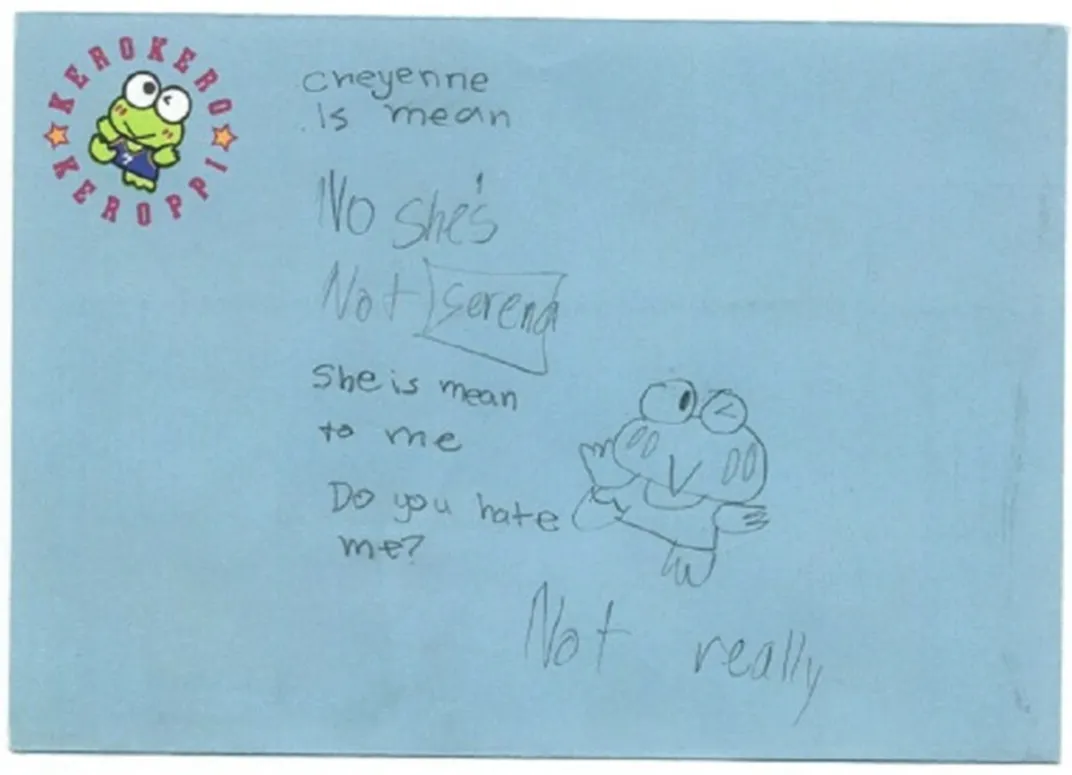 KEROKERO
KEROPPI
cheyenne
is mean
No she's
Not serena
She is mean
to me
Do you hate
me?
Not really